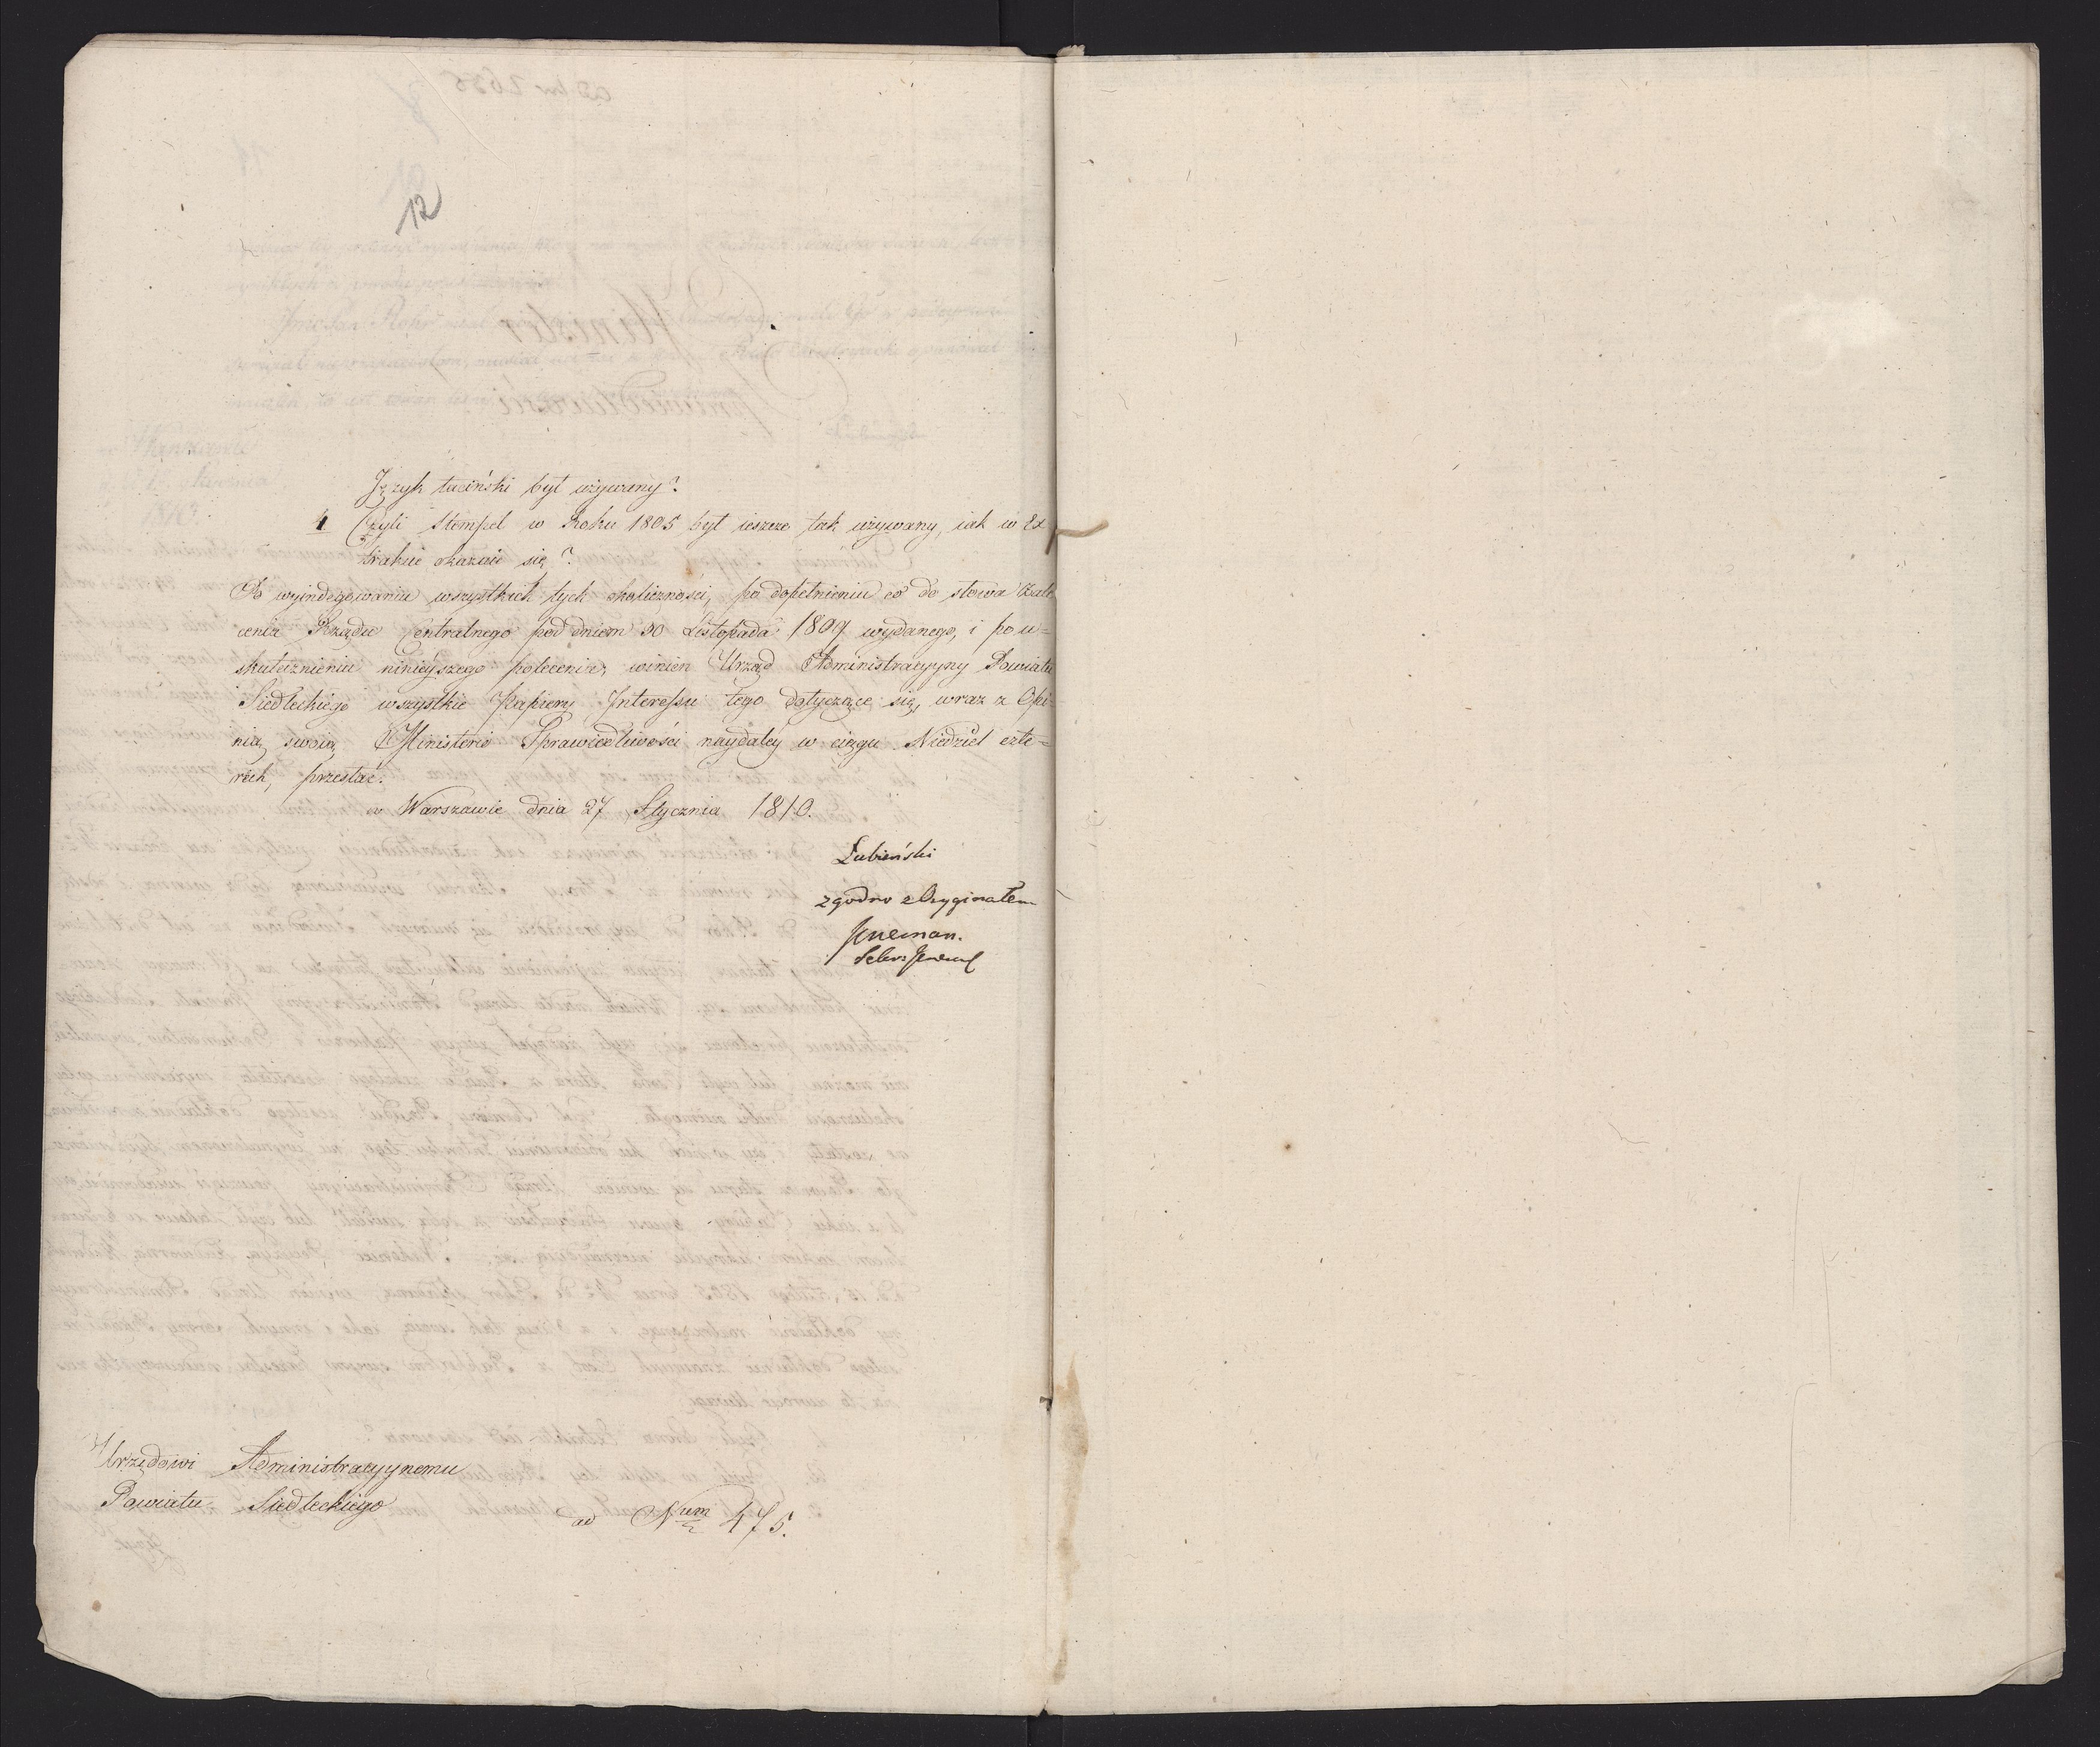 12
Język łaciński był używany?
4 Czyli Stempel w Roku 1805 był ieszcze tak używany, iak w Ex
trakcie okazuie się?
Po wyindagowaniu wszystkich tych okoliczności, po dopełnieniu co do słowa Zale
cenia Rządu Centralnego pod dniem 30 Listopada 1809 wydanego, i po u=
skutecznieniu ninieyszego polecenia, winien Urząd Administracyyny Powiatu
Siedleckiego wszystkie Papiery Interessu tego dotyczące się, wraz z Opi=
nią swoią Ministerio Sprawiedliwości naydaley w ciągu Niedziel czte=
rech, przesłać.
w Warszawie dnia 27 Stycznia 1810.
Łubieński
zgodno z Oryginałem
Sekr: Jeneral
Urzędowi Administracyynemu
Powiatu Siedleckiego
ad Num 475.